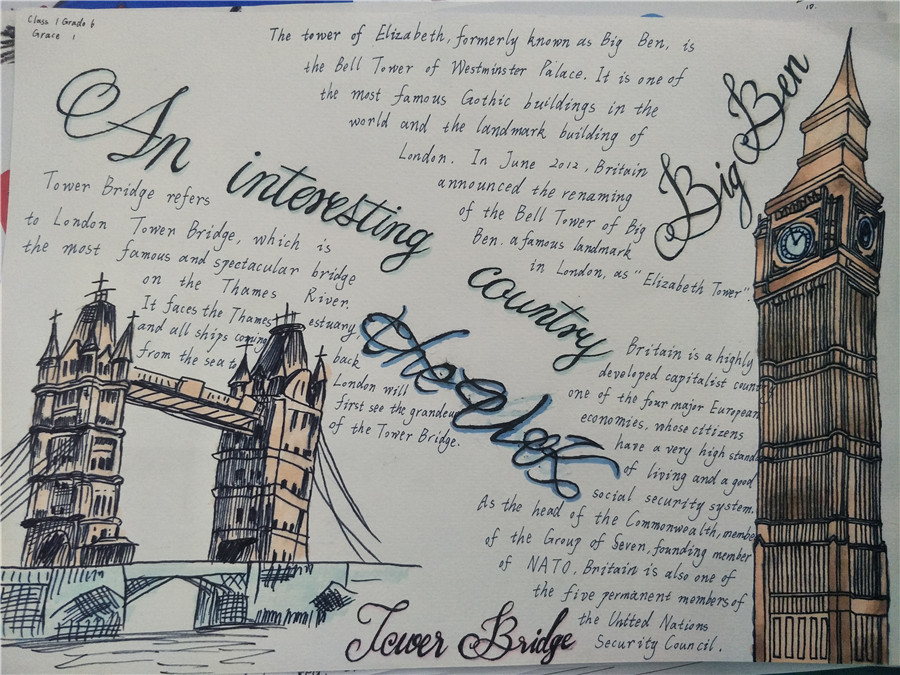 Class 1 Grade 6
Grace 1
10.
The tower of Elizabeth, formerly known as Big Ben, is
the Bell Tower of Westminster Palace. It is one of
the most famous Gothic buildings in the
world and the landmark building of
London. In June 2012, Britain
announced the renaming
of the Bell Tower of Big
Ben. a famous landmark
in London, as "Elizabeth Tower"
Big Ben
An interesting
country
the UK
Tower Bridge refers
to London Tower Bridge, which is
the most famous and spectacular bridge
on the Thames River.
It faces the Thames estuary,
and all ships coming
from the sea to back
London will
first see the grandeur
of the Tower Bridge.
Britain is a highly
developed capitalist coun
one of the four major European
economies. whose citizens
have a very high stand
of living and a good
social security system.
As the head of the Commonwealth, membe
of the Group of Seven, founding member
of NATO. Britain is also one of
the five permanent members of
the United Nations
Security Council.
Tower Bridge